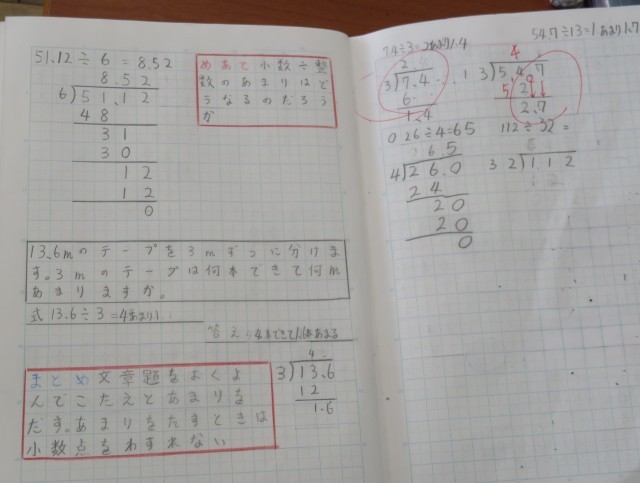 51.12÷6=8.52
8.52
6)51.12
48
31
30
12
12
0
めあて小数÷整
数のあまりはど
うなるのだろう
か
13.6mのテープを3mずつに分けま
す。3mのテープは何本できて何m
あまりますか。
式13.6÷3=4あまり1.
4
3)13.6
12
1.6
まとめ文章題をよくよ
んでこたえとあまりを
だす。あまりをだすときは
小数点をわすれない
7.4÷3=2あまり1.4
2
3)7.4
6
1.4
54.7÷13=1あまり1.7
4
5.4.7
2.7
0.26÷4=65
65
4)26.0
24
20
20
0
112÷32=
32)112